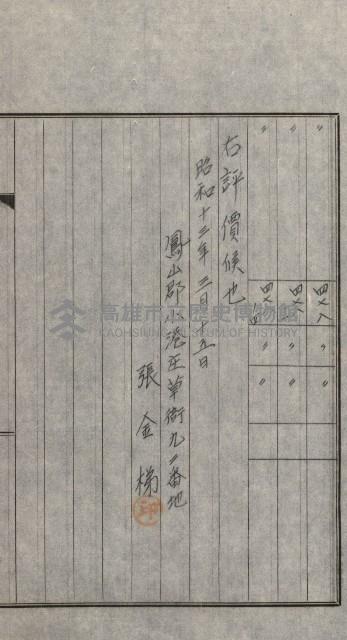 〃 四八八 〃 〃
〃 四八 〃 〃
〃 四八四
右評價候也
昭和十三年三月十五日
鳳山郡小港庄草衙九〃番地
張金梯
印
高雄市立歷史博物館
KAOHSIUNG MUSEUM OF HISTORY